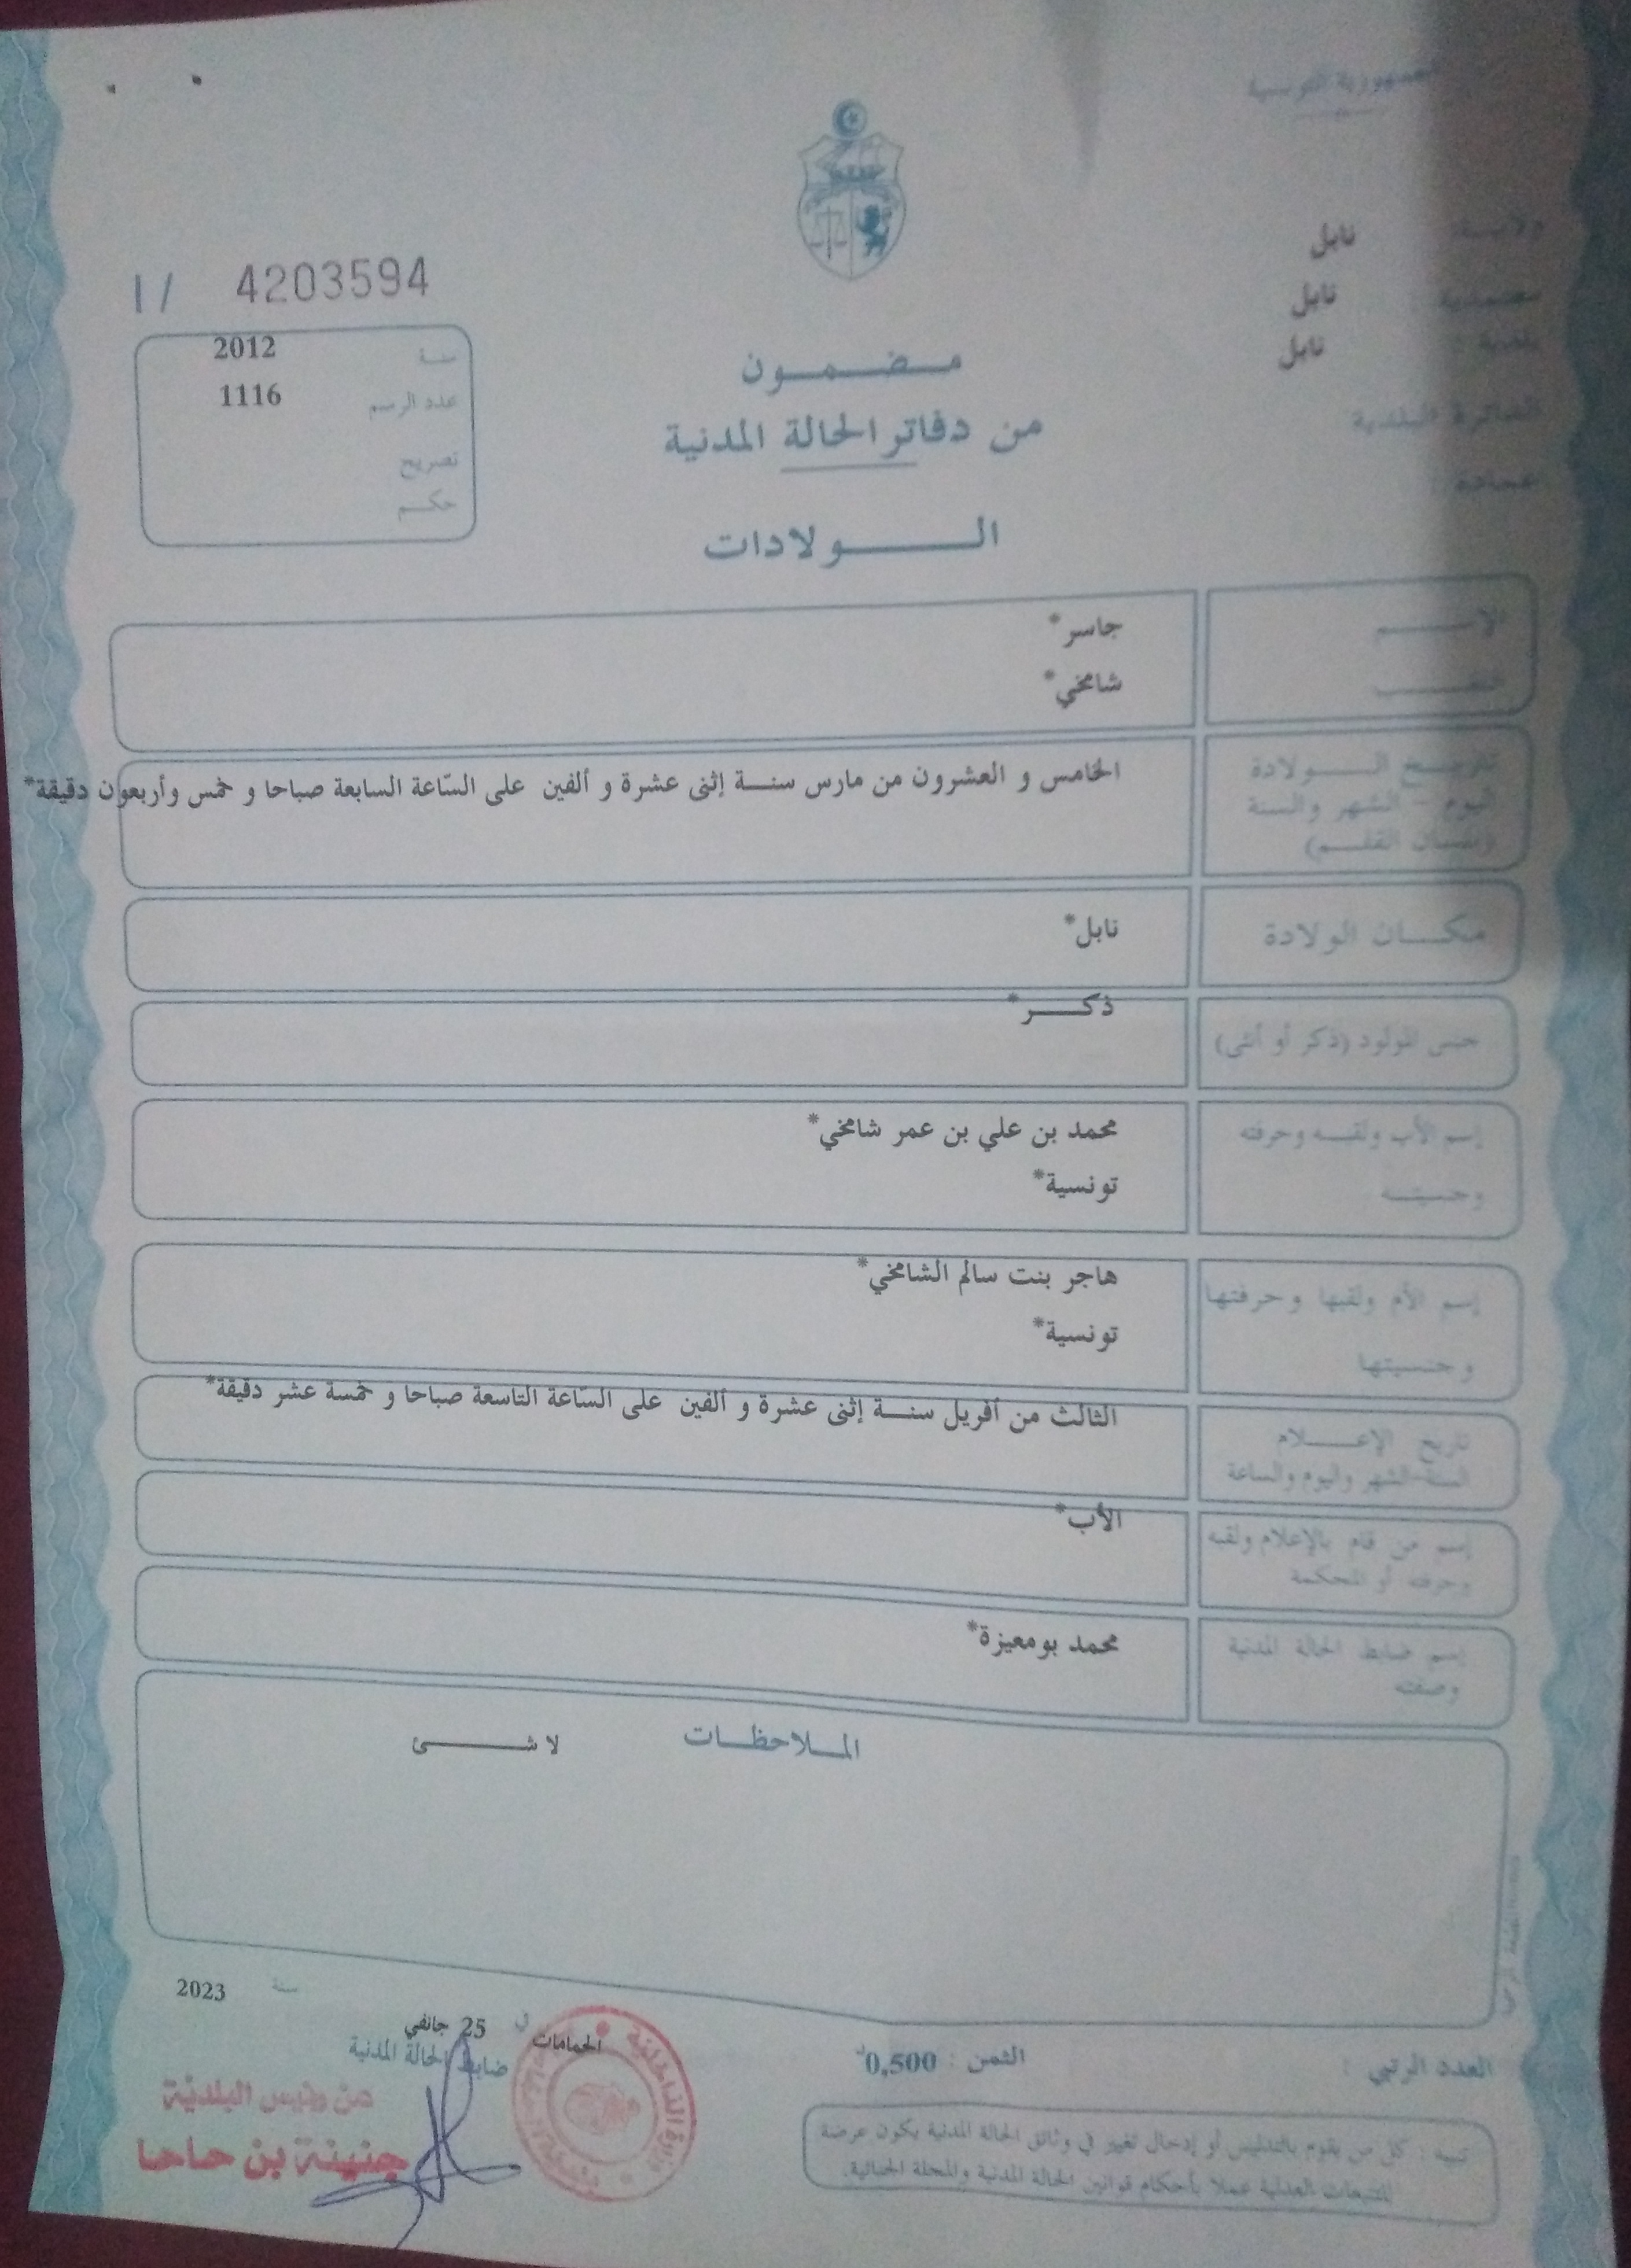 الجمهورية التونسية
ولايــة: نابل
معتمدية : نابل
بلدية : نابل
الدائرة البلدية
عمادة :
I / 4203594
سنـة 2012
عدد الرسم 1116
تصريح
حكـم
مـضـمـون
من دفاتر الحالة المدنية
الـولادات
الإسـم جاسر*
اللقـب شامخي*
تاريـخ الـولادة
اليوم - الشهر والسنة
(بلسـان القلـم)
الخامس و العشرون من مارس سنـة إثنى عشرة و ألفين على السّاعة السابعة صباحا و خمس وأربعون دقيقة*
مكـان الولادة نابل*
جنس المولود (ذكر أو أنثى) ذكـر*
إسم الأب ولقبـه وحرفته محمد بن علي بن عمر شامخي*
وجنسيتـه تونسية*
إسم الأم ولقبها وحرفتها هاجر بنت سالم الشامخي*
وجنسيتها تونسية*
تاريخ الإعـلام
السنة-الشهر واليوم والساعة
الثالث من أفريل سنـة إثنى عشرة و ألفين على السّاعة التاسعة صباحا و خمسة عشر دقيقة*
إسم من قام بالإعلام ولقبه
وحرفته أو المحكمة
الأب*
إسم ضابط الحالة المدنية
وصفته
محمد بومعيزة*
المـلاحظـات لا شـئ
سنة 2023
الحمامات في 25 جانفي
ضابط الحالة المدنية
عن رئيس البلدية
جنينة بن حاحا
وزارة الداخلية
العدد الرتبي :
الثمن : 0,500د
تنبيه : كل من يقوم بالتدليس أو إدخال تغيير في وثائق الحالة المدنية يكون عرضة
للتتبعات العدلية عملا بأحكام قوانين الحالة المدنية والمجلة الجنائية.